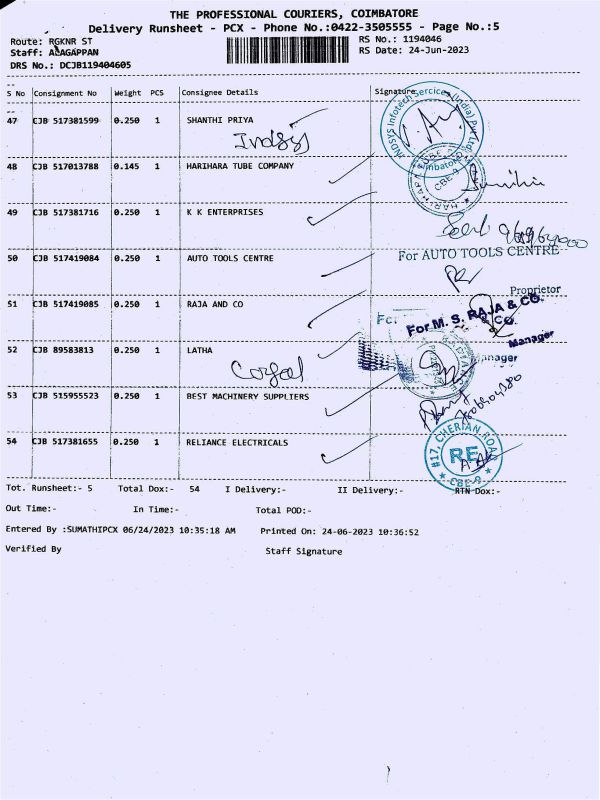 THE PROFESSIONAL COURIERS, COIMBATORE
Delivery Runsheet - PCX - Phone No.:0422-3505555 - Page No.:5
Route: RGKNR ST RS No.: 1194046
Staff: ALAGAPPAN RS Date: 24-Jun-2023
DRS No.: DCJB119404605
S No Consignment No Weight PCS Consignee Details Signature
47 CJB 517381599 0.250 1 SHANTHI PRIYA
Indsys
INDSYS Infotech Services (India) Pvt Ltd
48 CJB 517013788 0.145 1 HARIHARA TUBE COMPANY
CBE-9
49 CJB 517381716 0.250 1 K K ENTERPRISES
50 CJB 517419084 0.250 1 AUTO TOOLS CENTRE
For AUTO TOOLS CENTRE
Proprietor
51 CJB 517419085 0.250 1 RAJA AND CO
For M. S. RAJA & CO.
Manager
52 CJB 89583813 0.250 1 LATHA
53 CJB 515955523 0.250 1 BEST MACHINERY SUPPLIERS
54 CJB 517381655 0.250 1 RELIANCE ELECTRICALS
#17, CHERIAN ROAD
RE
CBE-9
Tot. Runsheet:- 5 Total Dox:- 54 I Delivery:- II Delivery:- RTN Dox:-
Out Time:- In Time:- Total POD:-
Entered By :SUMATHIPCX 06/24/2023 10:35:18 AM Printed On: 24-06-2023 10:36:52
Verified By Staff Signature